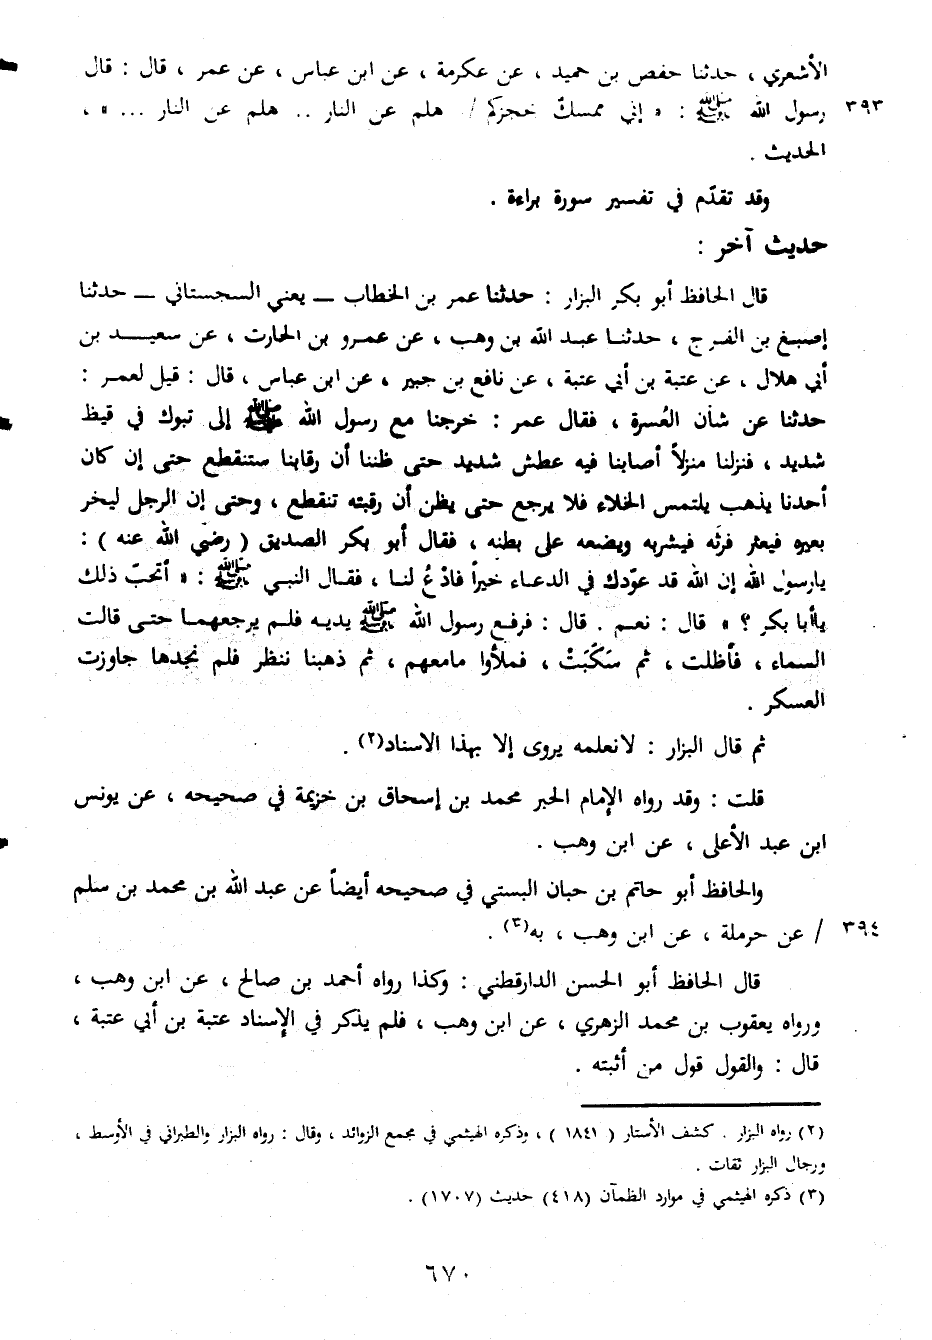 الأشعري ، حدثنا حفص بن حميد ، عن عكرمة ، عن ابن عباس ، عن عمر ، قال : قال
٣٩٣ رسول الله ﷺ : « إني ممسكٌ بحجزكم / هلم عن النار .. هلم عن النار ... » ،
الحديث .
وقد تقدّم في تفسير سورة براءة .
حديث آخر :
قال الحافظ أبو بكر البزار : حدثنا عمر بن الخطاب ــ يعني السجستاني ــ حدثنا
إصبغ بن الفرج ، حدثنا عبد الله بن وهب ، عن عمرو بن الحارث ، عن سعيد بن
أبي هلال ، عن عتبة بن أبي عتبة ، عن نافع بن جبير ، عن ابن عباس ، قال : قيل لعمر :
حدثنا عن شأن العُسرة ، فقال عمر : خرجنا مع رسول الله ﷺ إلى تبوك في قيظ
شديد ، فنزلنا منزلاً أصابنا فيه عطش شديد حتى ظننا أن رقابنا ستنقطع حتى إن كان
أحدنا يذهب يلتمس الخلاء فلا يرجع حتى يظن أن رقبته تنقطع ، وحتى إن الرجل ليخر
بعيره فيعثر فرثَه فيشربه ويضعه على بطنه ، فقال أبو بكر الصديق ( رضي الله عنه ) :
يارسول الله إن الله قد عوّدك في الدعاء خيراً فادْعُ لنا ، فقال النبي ﷺ : « أتحبّ ذلك
ياأبا بكر ؟ » قال : نعم . قال : فرفع رسول الله ﷺ يديه فلم يرجعهما حتى قالت
السماء ، فأظلت ، ثم سَكَبَتْ ، فملأوا مامعهم ، ثم ذهبنا ننظر فلم نجدها جاوزت
العسكر .
ثم قال البزار : لانعلمه يروى إلا بهذا الاسناد(٢) .
قلت : وقد رواه الإمام الحبر محمد بن إسحاق بن خزيمة في صحيحه ، عن يونس
ابن عبد الأعلى ، عن ابن وهب .
والحافظ أبو حاتم بن حبان البستي في صحيحه أيضاً عن عبد الله بن محمد بن سلم
٣٩٤ / عن حرملة ، عن ابن وهب ، به(٣) .
قال الحافظ أبو الحسن الدارقطني : وكذا رواه أحمد بن صالح ، عن ابن وهب ،
ورواه يعقوب بن محمد الزهري ، عن ابن وهب ، فلم يذكر في الإسناد عتبة بن أبي عتبة ،
قال : والقول قول من أثبته .
(٢) رواه البزار . كشف الأستار ( ١٨٤١ ) ، وذكره الهيثمي في مجمع الزوائد ، وقال : رواه البزار والطبراني في الأوسط ،
ورجال البزار ثقات .
(٣) ذكره الهيثمي في موارد الظمآن (٤١٨) حديث (١٧٠٧) .
٦٧٠